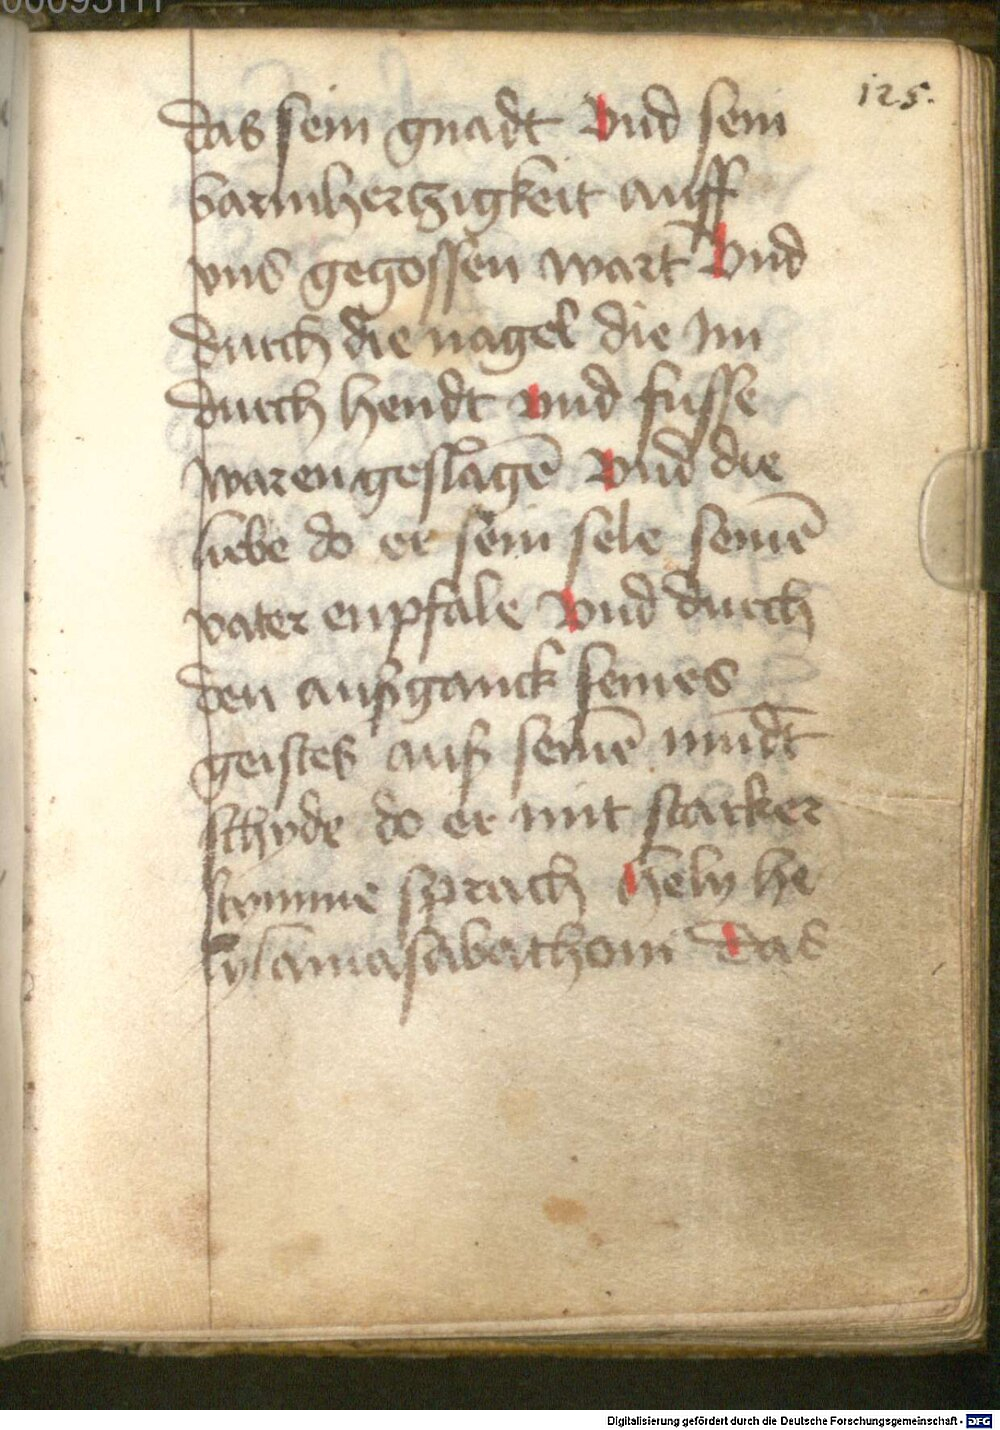 125.
das sein gnadt Vnd sein
barmhertzigkeit auff
vns gegossen wart Vnd
durch die nagel die Im
durch hendt vnd fusse
waren geslagē vnd die
liebe do er sein sele seinē
vater enpfale Vnd durch
den außganck seines
geistes auß seinē mūdt
schyde do er mit starker
stymme sprach hely he
ly lamasabathani das
Digitalisierung gefördert durch die Deutsche Forschungsgemeinschaft - DFG